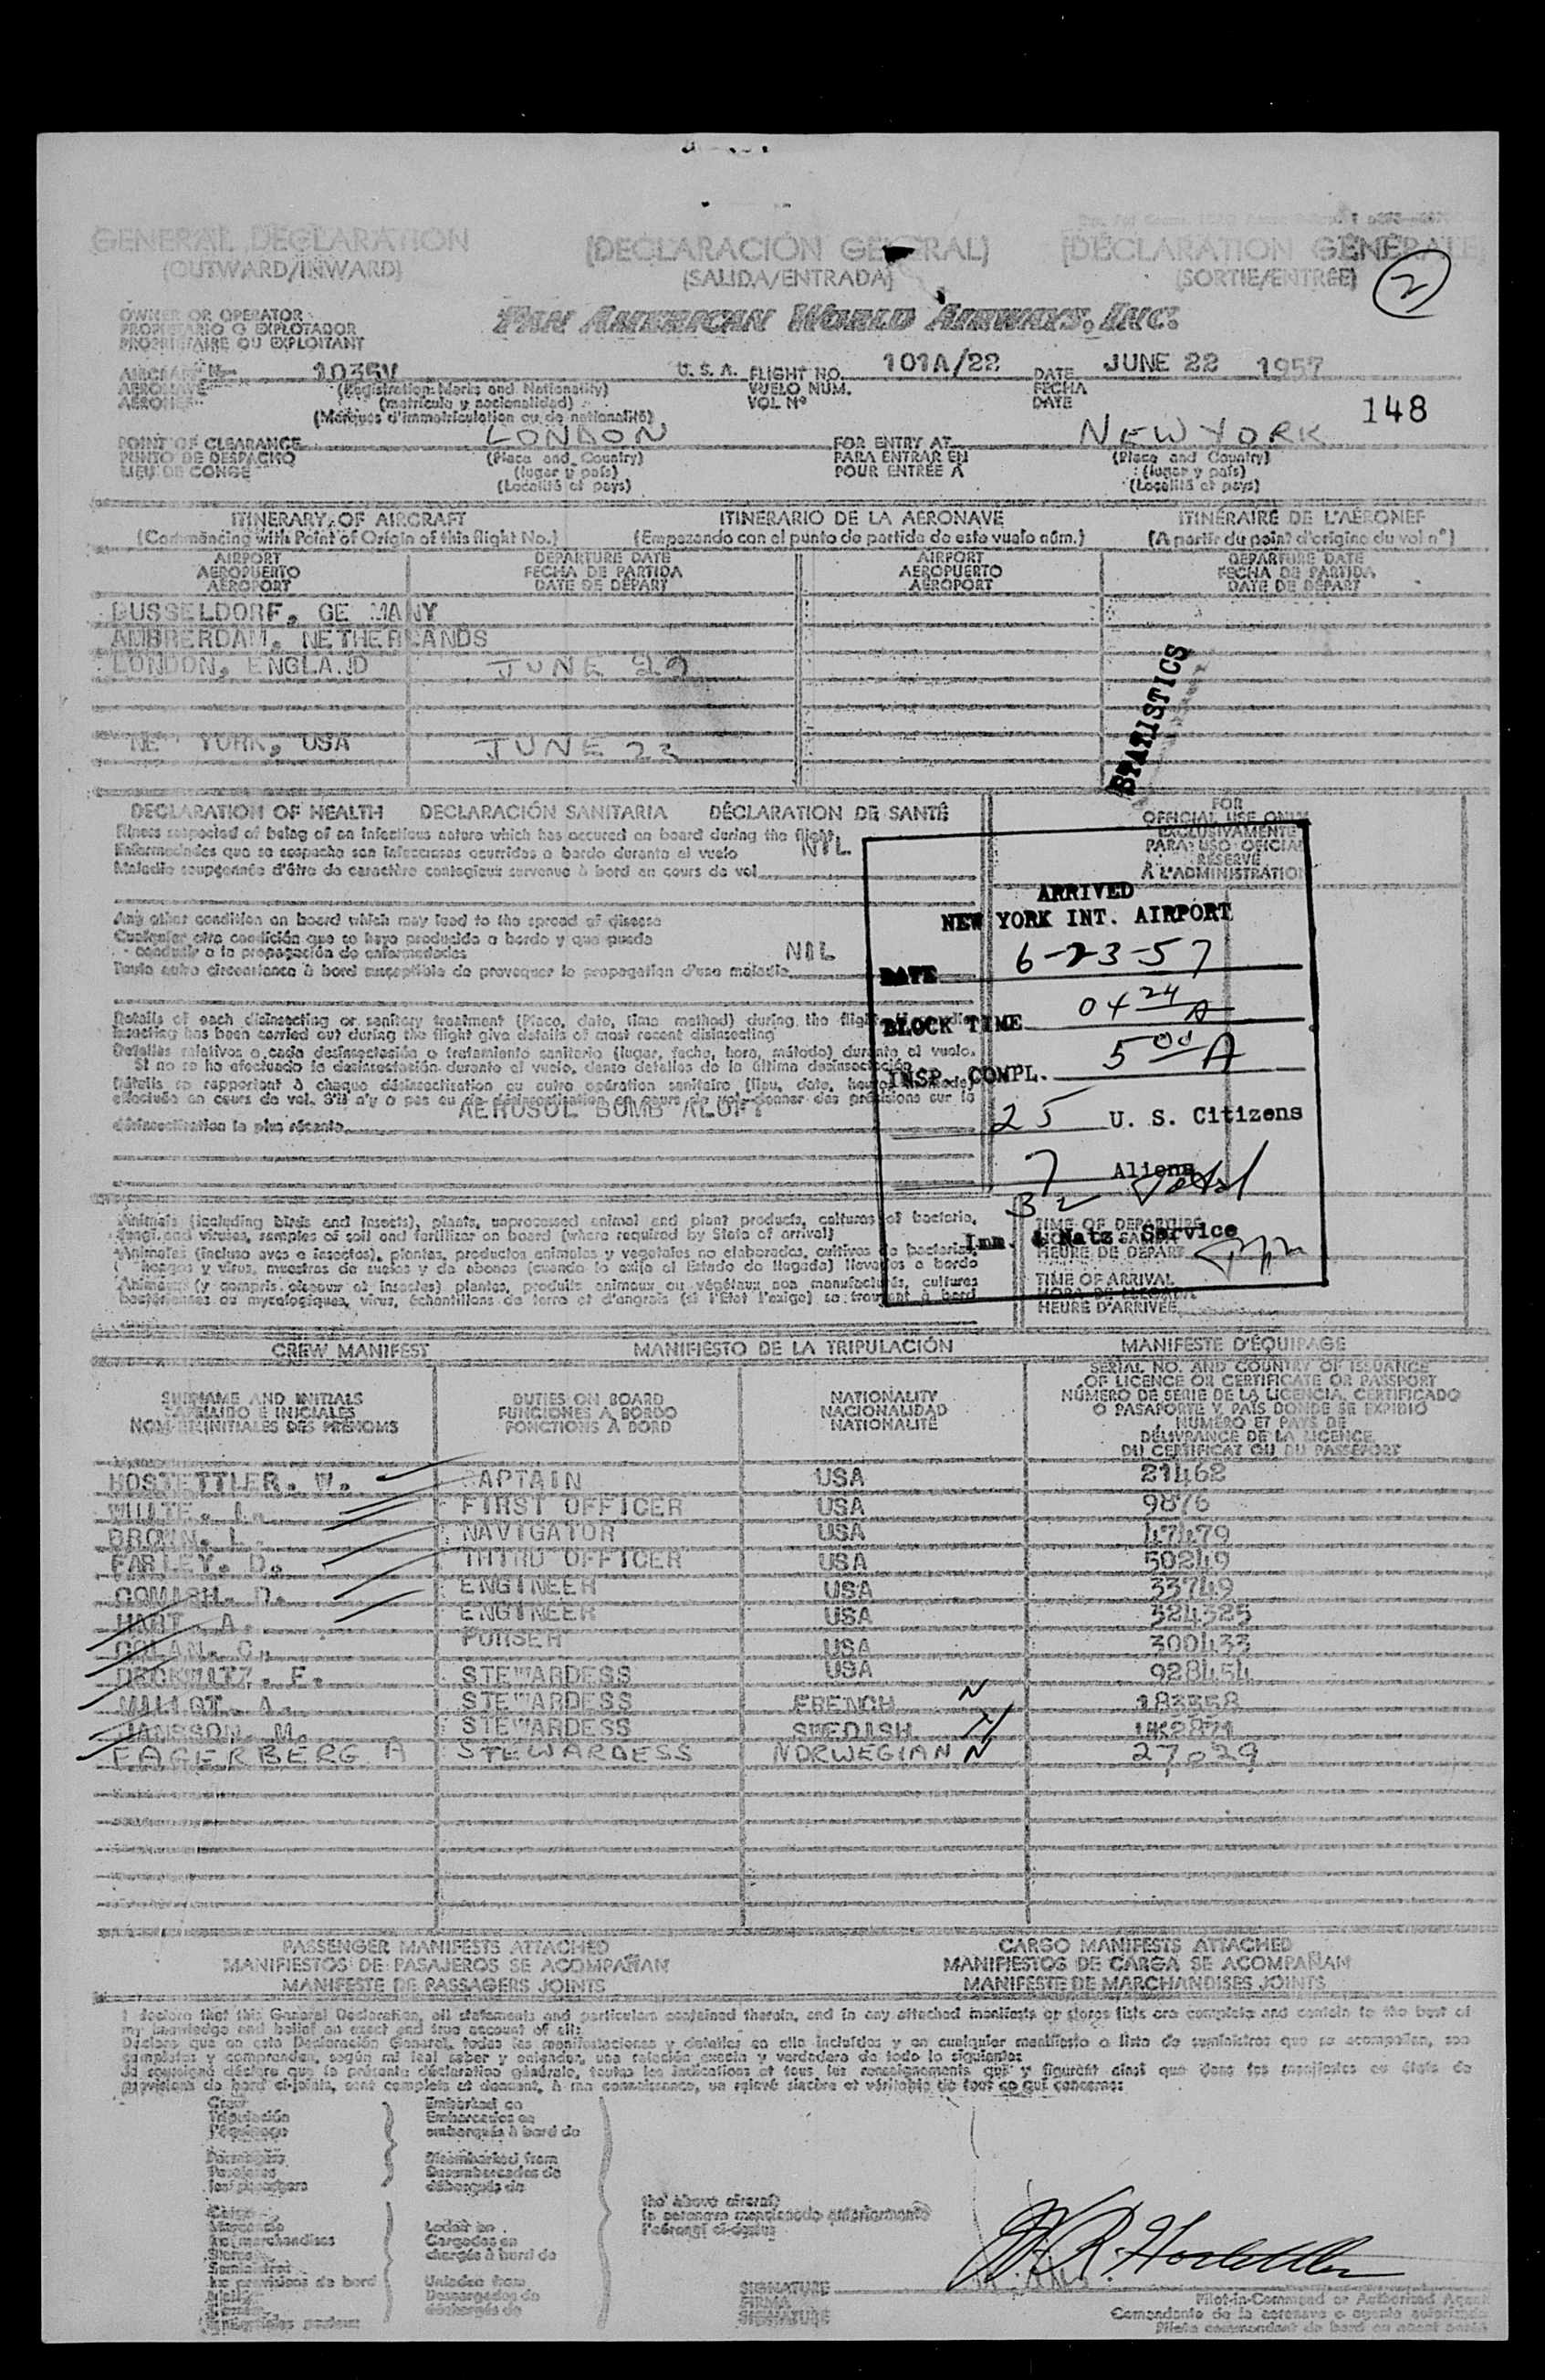 GENERAL DECLARATION
(OUTWARD/INWARD)
(SALIDA/ENTRADA)
[DECLARATION GÉNÉRALE]
(SORTIE/ENTRÉE)
2
OWNER OR OPERATOR
PROPIETARIO O EXPLOTADOR
PROPRIÉTAIRE OU EXPLOITANT
PAN AMERICAN WORLD AIRWAYS, INC.
1035V U. S. A. FLIGHT NO. 101A/22 DATE JUNE 22 1957
AERONAVE (Registration Marks and Nationality) VUELO NUM. FECHA
(matrícula y nacionalidad) VOL Nº DATE
(Marques d'immatriculation ou de nationalité) 148
POINT OF CLEARANCE LONDON FOR ENTRY AT NEW YORK
PUNTO DE DESPACHO (Place and Country) PARA ENTRAR EN (Place and Country)
LIEU DE CONGE (lugar y país) POUR ENTRÉE A (lugar y país)
(Localité et pays) (Localité et pays)
ITINERARY OF AIRCRAFT ITINERARIO DE LA AERONAVE ITINÉRAIRE DE L'AÉRONEF
(Commencing with Point of Origin of this flight No.) (Empezando con el punto de partida de este vuelo núm.) (A partir du point d'origine du vol nº)
AIRPORT DEPARTURE DATE AIRPORT DEPARTURE DATE
AEROPUERTO FECHA DE PARTIDA AEROPUERTO FECHA DE PARTIDA
AÉROPORT DATE DE DÉPART AÉROPORT DATE DE DÉPART
DUSSELDORF, GE MANY
NETHERLANDS
LONDON, ENGLAND JUNE 22
NE YORK, USA JUNE 23
STATISTICS
DECLARATION OF HEALTH DECLARACIÓN SANITARIA DÉCLARATION DE SANTÉ
Illness suspected of being of an infectious nature which has occured on board during the flight NIL
Enfermedades que se sospecha son infecciosas ocurridas a bordo durante el vuelo
Maladie soupçonnée d'être de caractère contagieux survenue à bord en cours de vol
FOR
OFFICIAL USE ONLY
EXCLUSIVAMENTE
PARA USO OFICIAL
RÉSERVÉ
À L'ADMINISTRATION
Any other condition on board which may lead to the spread of disease
Cualquier otra condición que se haya producido a bordo y que pueda
conducir a la propagación de enfermedades NIL
Toute autre circonstance à bord susceptible de provoquer la propagation d'une maladie
ARRIVED
NEW YORK INT. AIRPORT
DATE 6-23-57
BLOCK TIME 04 24 A
INSP. COMPL. 5 00 A
25 U. S. Citizens
7 Aliens
32 Total
Imm. & Natz. Service
Details of each disinsecting or sanitary treatment (Place, date, time method) during the flight
insecting has been carried out during the flight give details of most recent disinsecting
Detalles relativos a cada desinsectación o tratamiento sanitario (lugar, fecha, hora, método) durante el vuelo.
Si no se ha efectuado la desinsectación durante el vuelo, dense detalles de la última desinsectación
AEROSOL BOMB ALOFT
désinsectisation la plus récente
Animals (including birds and insects), plants, unprocessed animal and plant products, cultures of bacteria,
fungi and viruses, samples of soil and fertilizer on board (where required by State of arrival)
Animales (incluso aves e insectos), plantas, productos animales y vegetales no elaborados, cultivos de bacterias,
hongos y virus, muestras de suelos y de abonos (cuando lo exija el Estado de llegada) llevados a bordo
Animaux (y compris oiseaux et insectes) plantes, produits animaux ou végétaux non manufacturés, cultures
bactériennes ou mycologiques, virus, échantillons de terre et d'engrais (si l'Etat l'exige) se trouvant à bord
TIME OF DEPARTURE
HEURE DE DÉPART
TIME OF ARRIVAL
HORA DE LLEGADA
HEURE D'ARRIVÉE
CREW MANIFEST MANIFIESTO DE LA TRIPULACIÓN MANIFESTE D'ÉQUIPAGE
SURNAME AND INITIALS
APELLIDO E INICIALES
NOM ET INITIALES DES PRÉNOMS
DUTIES ON BOARD
FUNCIONES A BORDO
FONCTIONS À BORD
NATIONALITY
NACIONALIDAD
NATIONALITÉ
SERIAL NO. AND COUNTRY OF ISSUANCE
OF LICENCE OR CERTIFICATE OR PASSPORT
NÚMERO DE SERIE DE LA LICENCIA, CERTIFICADO
O PASAPORTE Y PAÍS DONDE SE EXPIDIÓ
NUMÉRO ET PAYS DE
DÉLIVRANCE DE LA LICENCE
DU CERTIFICAT OU DU PASSEPORT
HOSTETTLER. W. CAPTAIN USA 21462
WHITE. FIRST OFFICER USA 9876
BROWN. L. NAVIGATOR USA 47479
FARLEY. D. THIRD OFFICER USA 50249
ENGINEER USA 33749
HART. A. ENGINEER USA 324325
PURSER USA 300433
STEWARDESS USA 928454
STEWARDESS FRENCH N 183358
JANSSON. M. STEWARDESS SWEDISH N
FAGERBERG A STEWARDESS NORWEGIAN N 27029
PASSENGER MANIFESTS ATTACHED CARGO MANIFESTS ATTACHED
MANIFIESTOS DE PASAJEROS SE ACOMPAÑAN MANIFIESTOS DE CARGA SE ACOMPAÑAN
MANIFESTE DE PASSAGERS JOINTS MANIFESTE DE MARCHANDISES JOINTS
I declare that this General Declaration, all statements and particulars contained therein, and in any attached manifests or stores lists are complete and contain to the best of
my knowledge and belief an exact and true account of all:
Declaro que en esta Declaración General, todas las manifestaciones y detalles en ella incluidos y en cualquier manifiesto o lista de suministros que se acompañan, son
completos y comprenden, según mi leal saber y entender, una relación exacta y verdadera de todo lo siguiente:
Je soussigné déclare que la présente déclaration générale, toutes les indications et tous les renseignements qui y figurent ainsi que dans les manifestes ou états de
provisions de bord ci-joints, sont complets et donnent, à ma connaissance, un relevé sincère et véritable de tout ce qui concerne:
Crew Embarked on
Tripulación Embarcados en
l'équipage embarqués à bord de
Disembarked from
Pasajeros Desembarcados de
débarqués de
the above aircraft
la aeronave mencionada anteriormente
l'aéronef ci-dessus
Cargo
Cargados en
les marchandises chargés à bord de
Stores
Suministros
les provisions de bord Unladen from
Descargados de
déchargés de
SIGNATURE W. R. Hostettler
FIRMA
SIGNATURE
Pilot-in-Command or Authorized Agent
Comandante de la aeronave o agente autorizado
Pilote commandant de bord ou agent